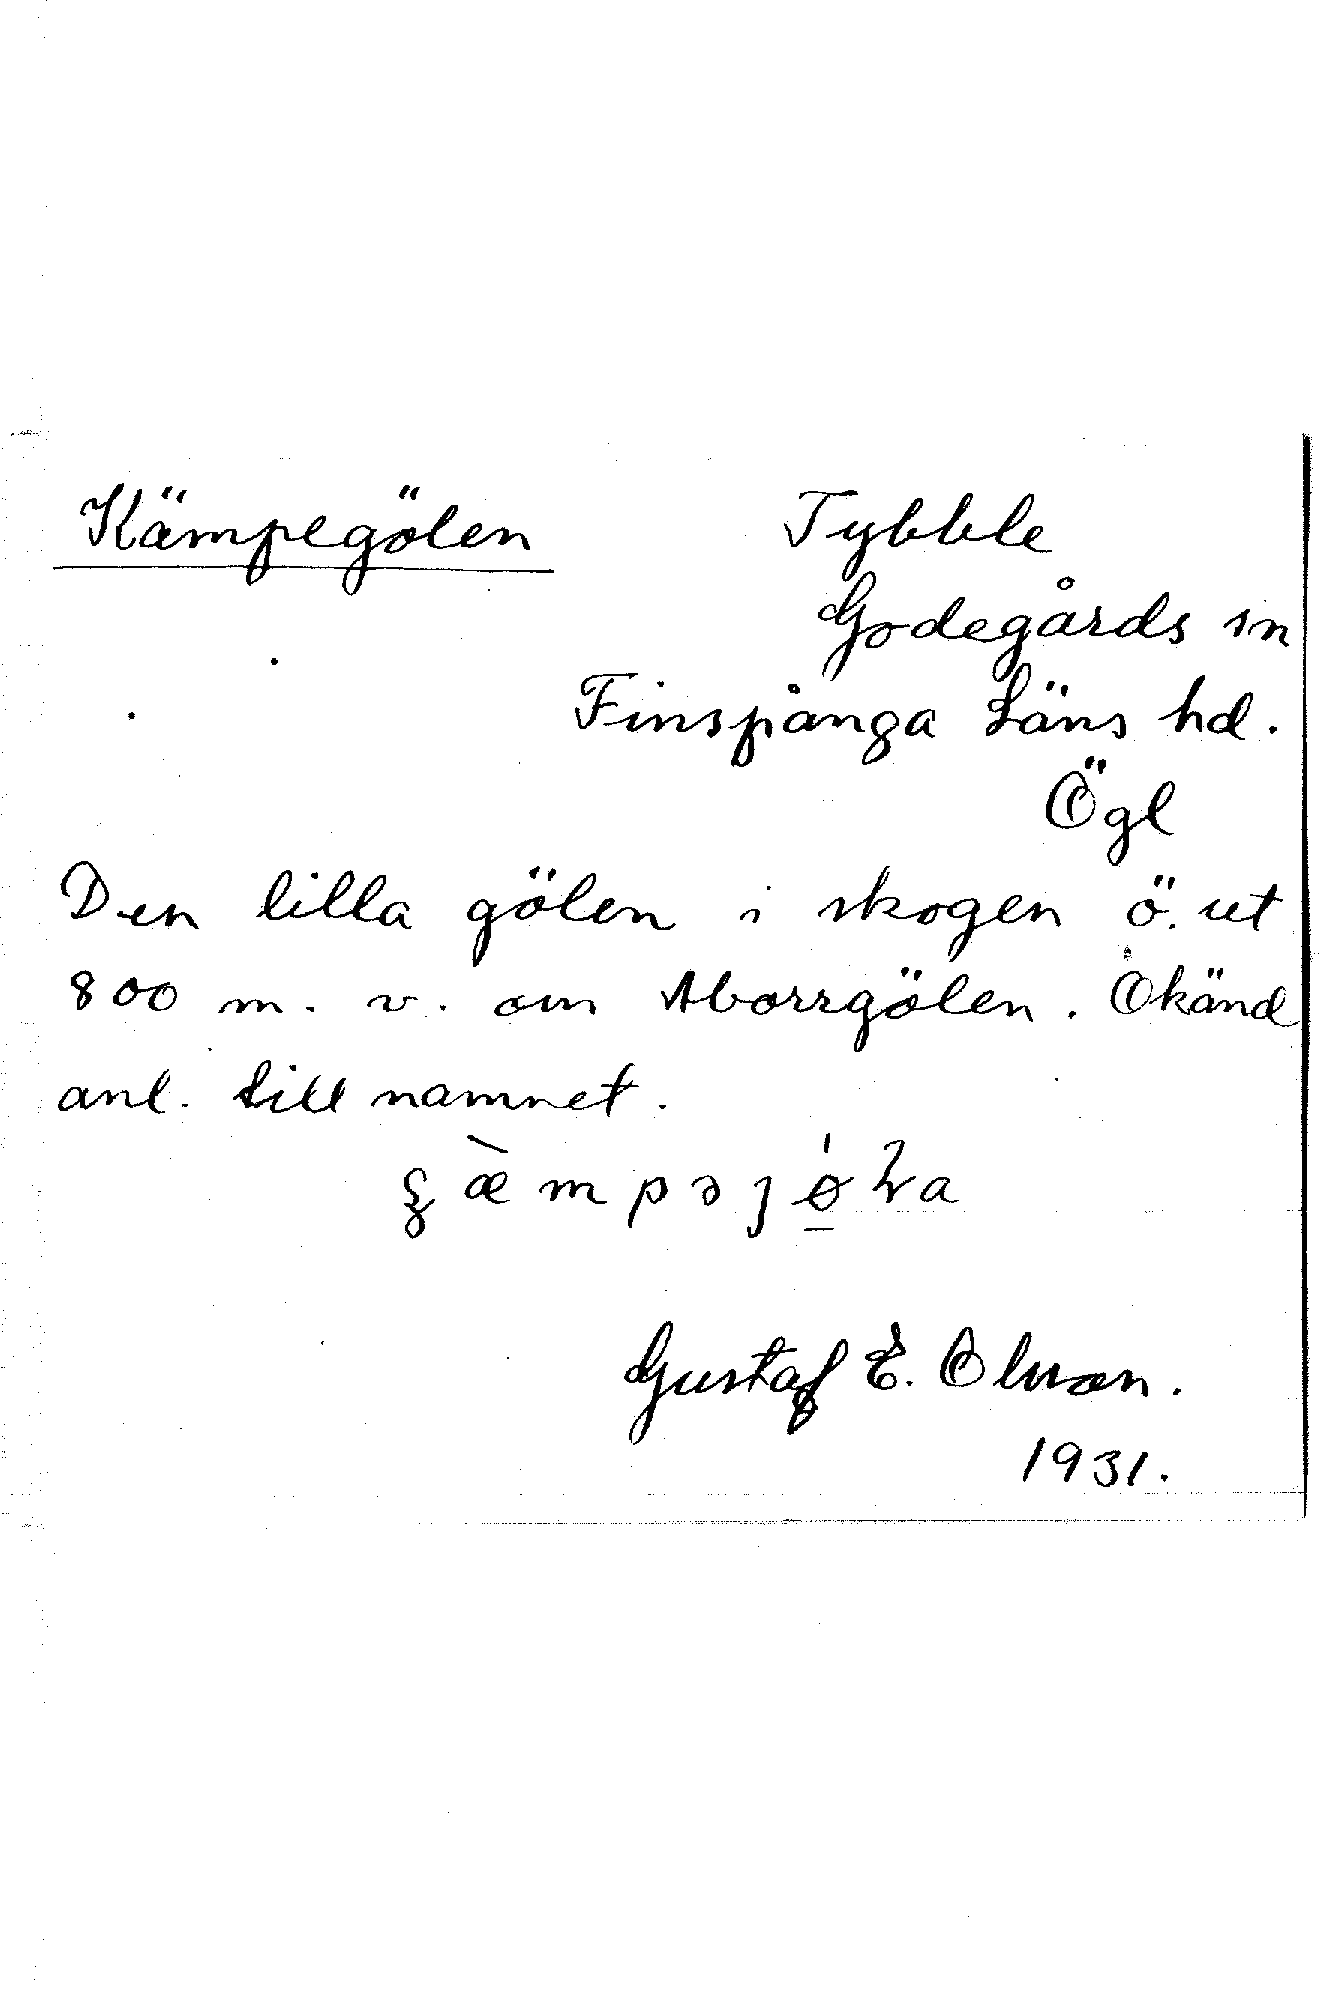 Kämpegölen Tybble
Godegårds sn
Finspånga Läns hd.
Ögl
Den lilla gölen i skogen ö. ut
800 m. v. om Aborrgölen. Okänd
anl. till namnet.
Gustaf E. Olsson.
1931.